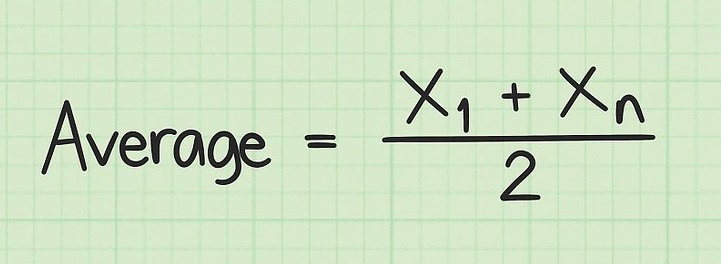 Average = (X₁ + Xₙ) / 2